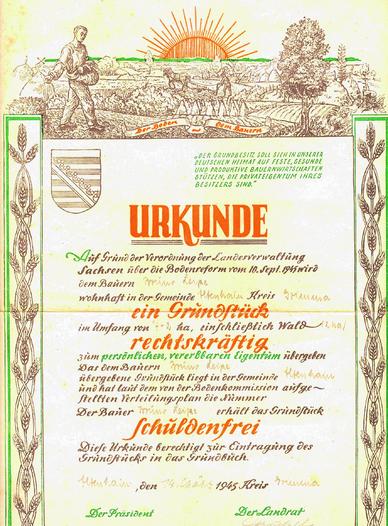 Der Boden dem Bauern
„DER GRUNDBESITZ SOLL SICH IN UNSERER
DEUTSCHEN HEIMAT AUF FESTE, GESUNDE
UND PRODUKTIVE BAUERNWIRTSCHAFTEN
STÜTZEN, DIE PRIVATEIGENTUM IHRES
BESITZERS SIND."
URKUNDE
Auf Grund der Verordnung der Landesverwaltung
Sachsen über die Bodenreform vom 10. Sept. 1945 wird
dem Bauern
wohnhaft in der Gemeinde Kreis Grimma
ein Grundstück
im Umfang von ha, einschließlich Wald
rechtskräftig
zum persönlichen, vererbbaren Eigentum übergeben
Das dem Bauern
übergebene Grundstück liegt in der Gemeinde
und hat laut dem von der Bodenkommission aufge-
stellten Verteilungsplan die Nummer
Der Bauer erhält das Grundstück
schuldenfrei
Diese Urkunde berechtigt zur Eintragung des
Grundstücks in das Grundbuch.
, den 1945 Kreis Grimma
Der Präsident Der Landrat